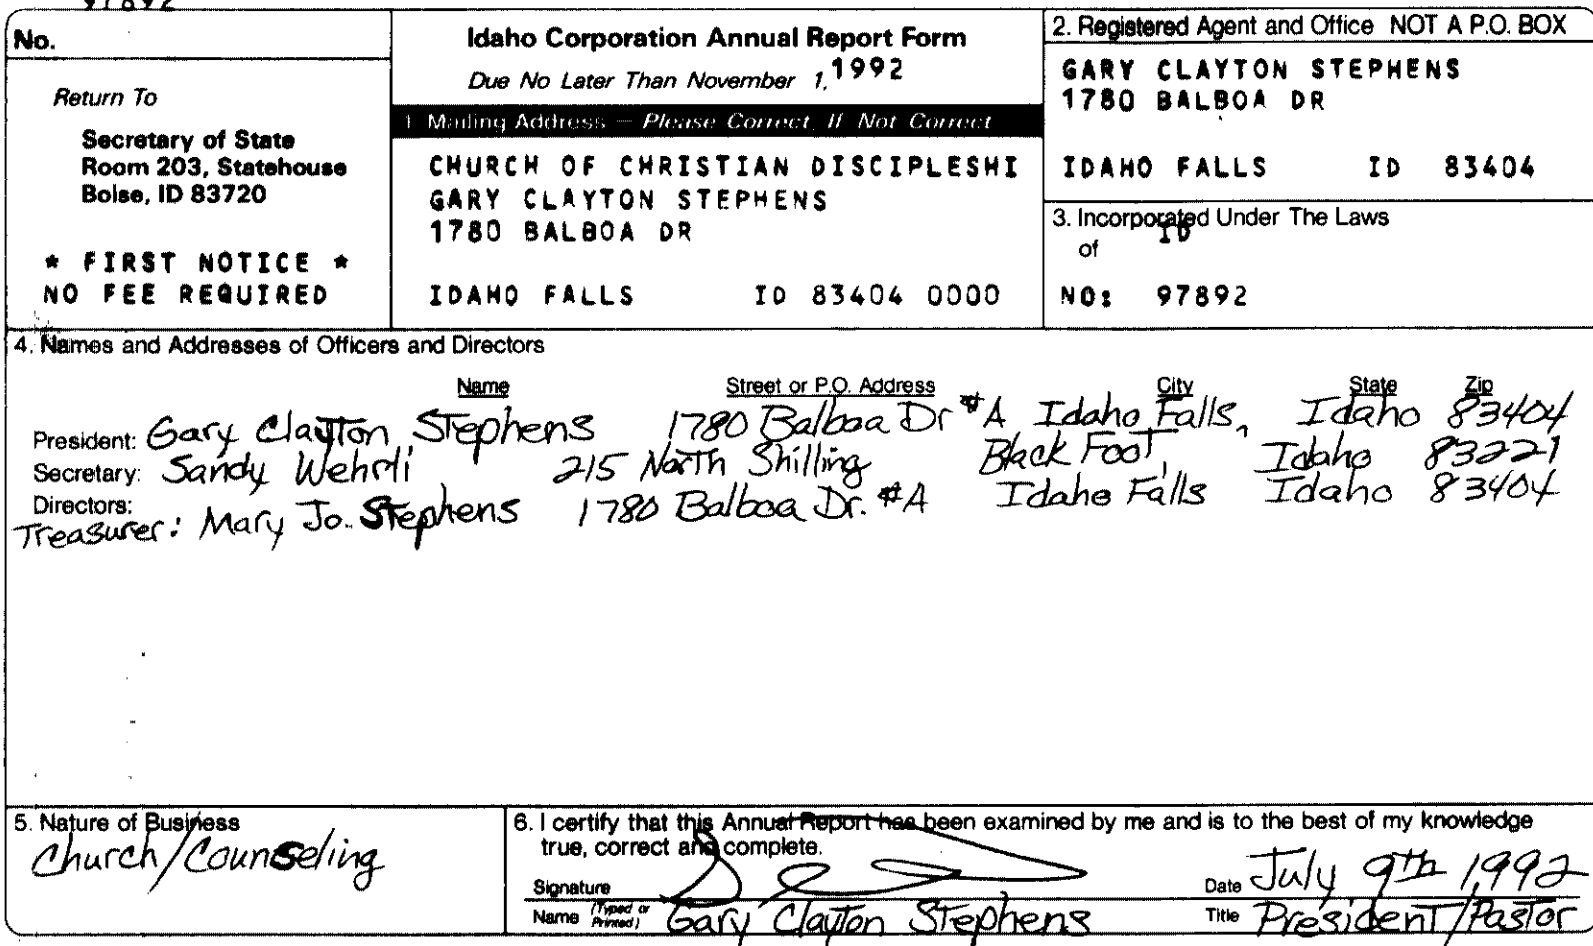 97892
No.
Return To
Secretary of State
Room 203, Statehouse
Boise, ID 83720
* FIRST NOTICE *
NO FEE REQUIRED
Idaho Corporation Annual Report Form
Due No Later Than November 1, 1992
1. Mailing Address — Please Correct, If Not Correct
CHURCH OF CHRISTIAN DISCIPLESHI
GARY CLAYTON STEPHENS
1780 BALBOA DR
IDAHO FALLS ID 83404 0000
2. Registered Agent and Office NOT A P.O. BOX
GARY CLAYTON STEPHENS
1780 BALBOA DR
IDAHO FALLS ID 83404
3. Incorporated Under The Laws
of ID
NO: 97892
4. Names and Addresses of Officers and Directors
Name Street or P.O. Address City State Zip
President: Gary Clayton Stephens 1780 Balboa Dr #A Idaho Falls, Idaho 83404
Secretary: Sandy Wehrli 215 North Shilling Black Foot, Idaho 83221
Directors:
Treasurer: Mary Jo. Stephens 1780 Balboa Dr. #A Idaho Falls Idaho 83404
5. Nature of Business
Church/Counseling
6. I certify that this Annual Report has been examined by me and is to the best of my knowledge
true, correct and complete.
Signature
Date July 9th 1992
Name (Typed or Printed) Gary Clayton Stephens
Title President/Pastor